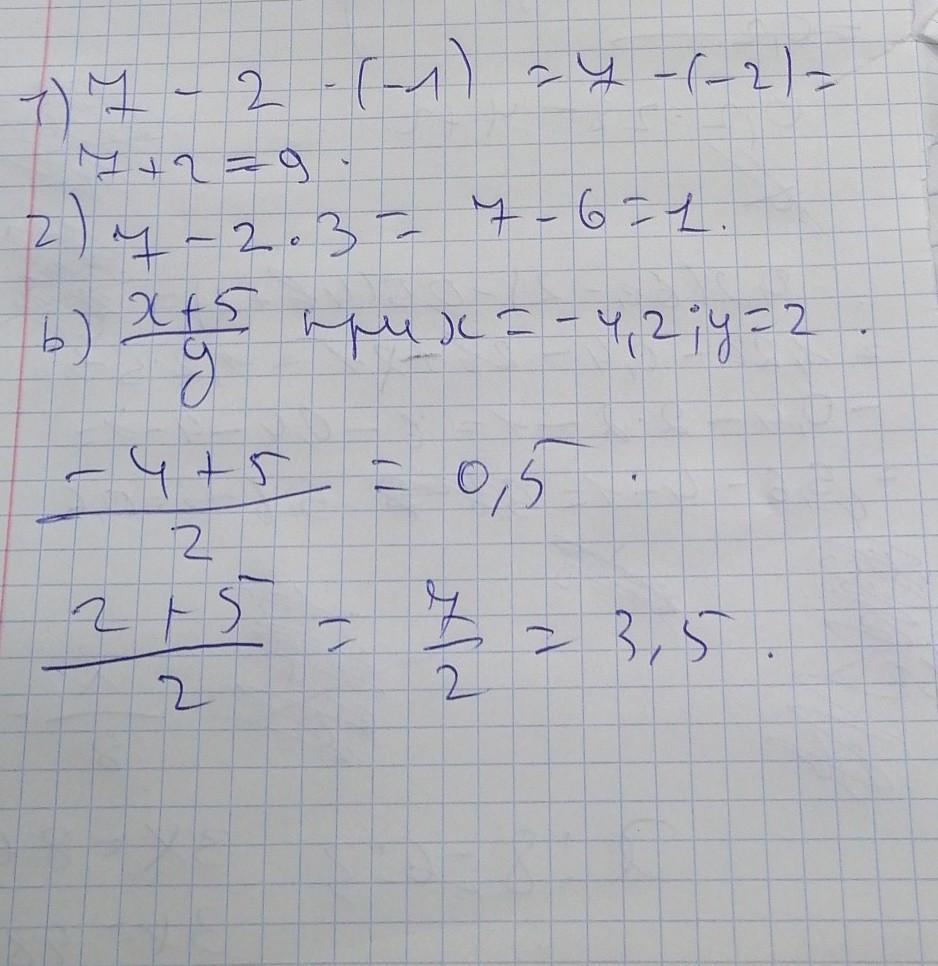 1) 7 - 2 · (-1) = 7 - (-2) =
7 + 2 = 9.
2) 7 - 2 · 3 = 7 - 6 = 1.
b) \frac{x+5}{y} при x = -4,2; y = 2.
\frac{-4+5}{2} = 0,5.
\frac{2+5}{2} = \frac{7}{2} = 3,5.